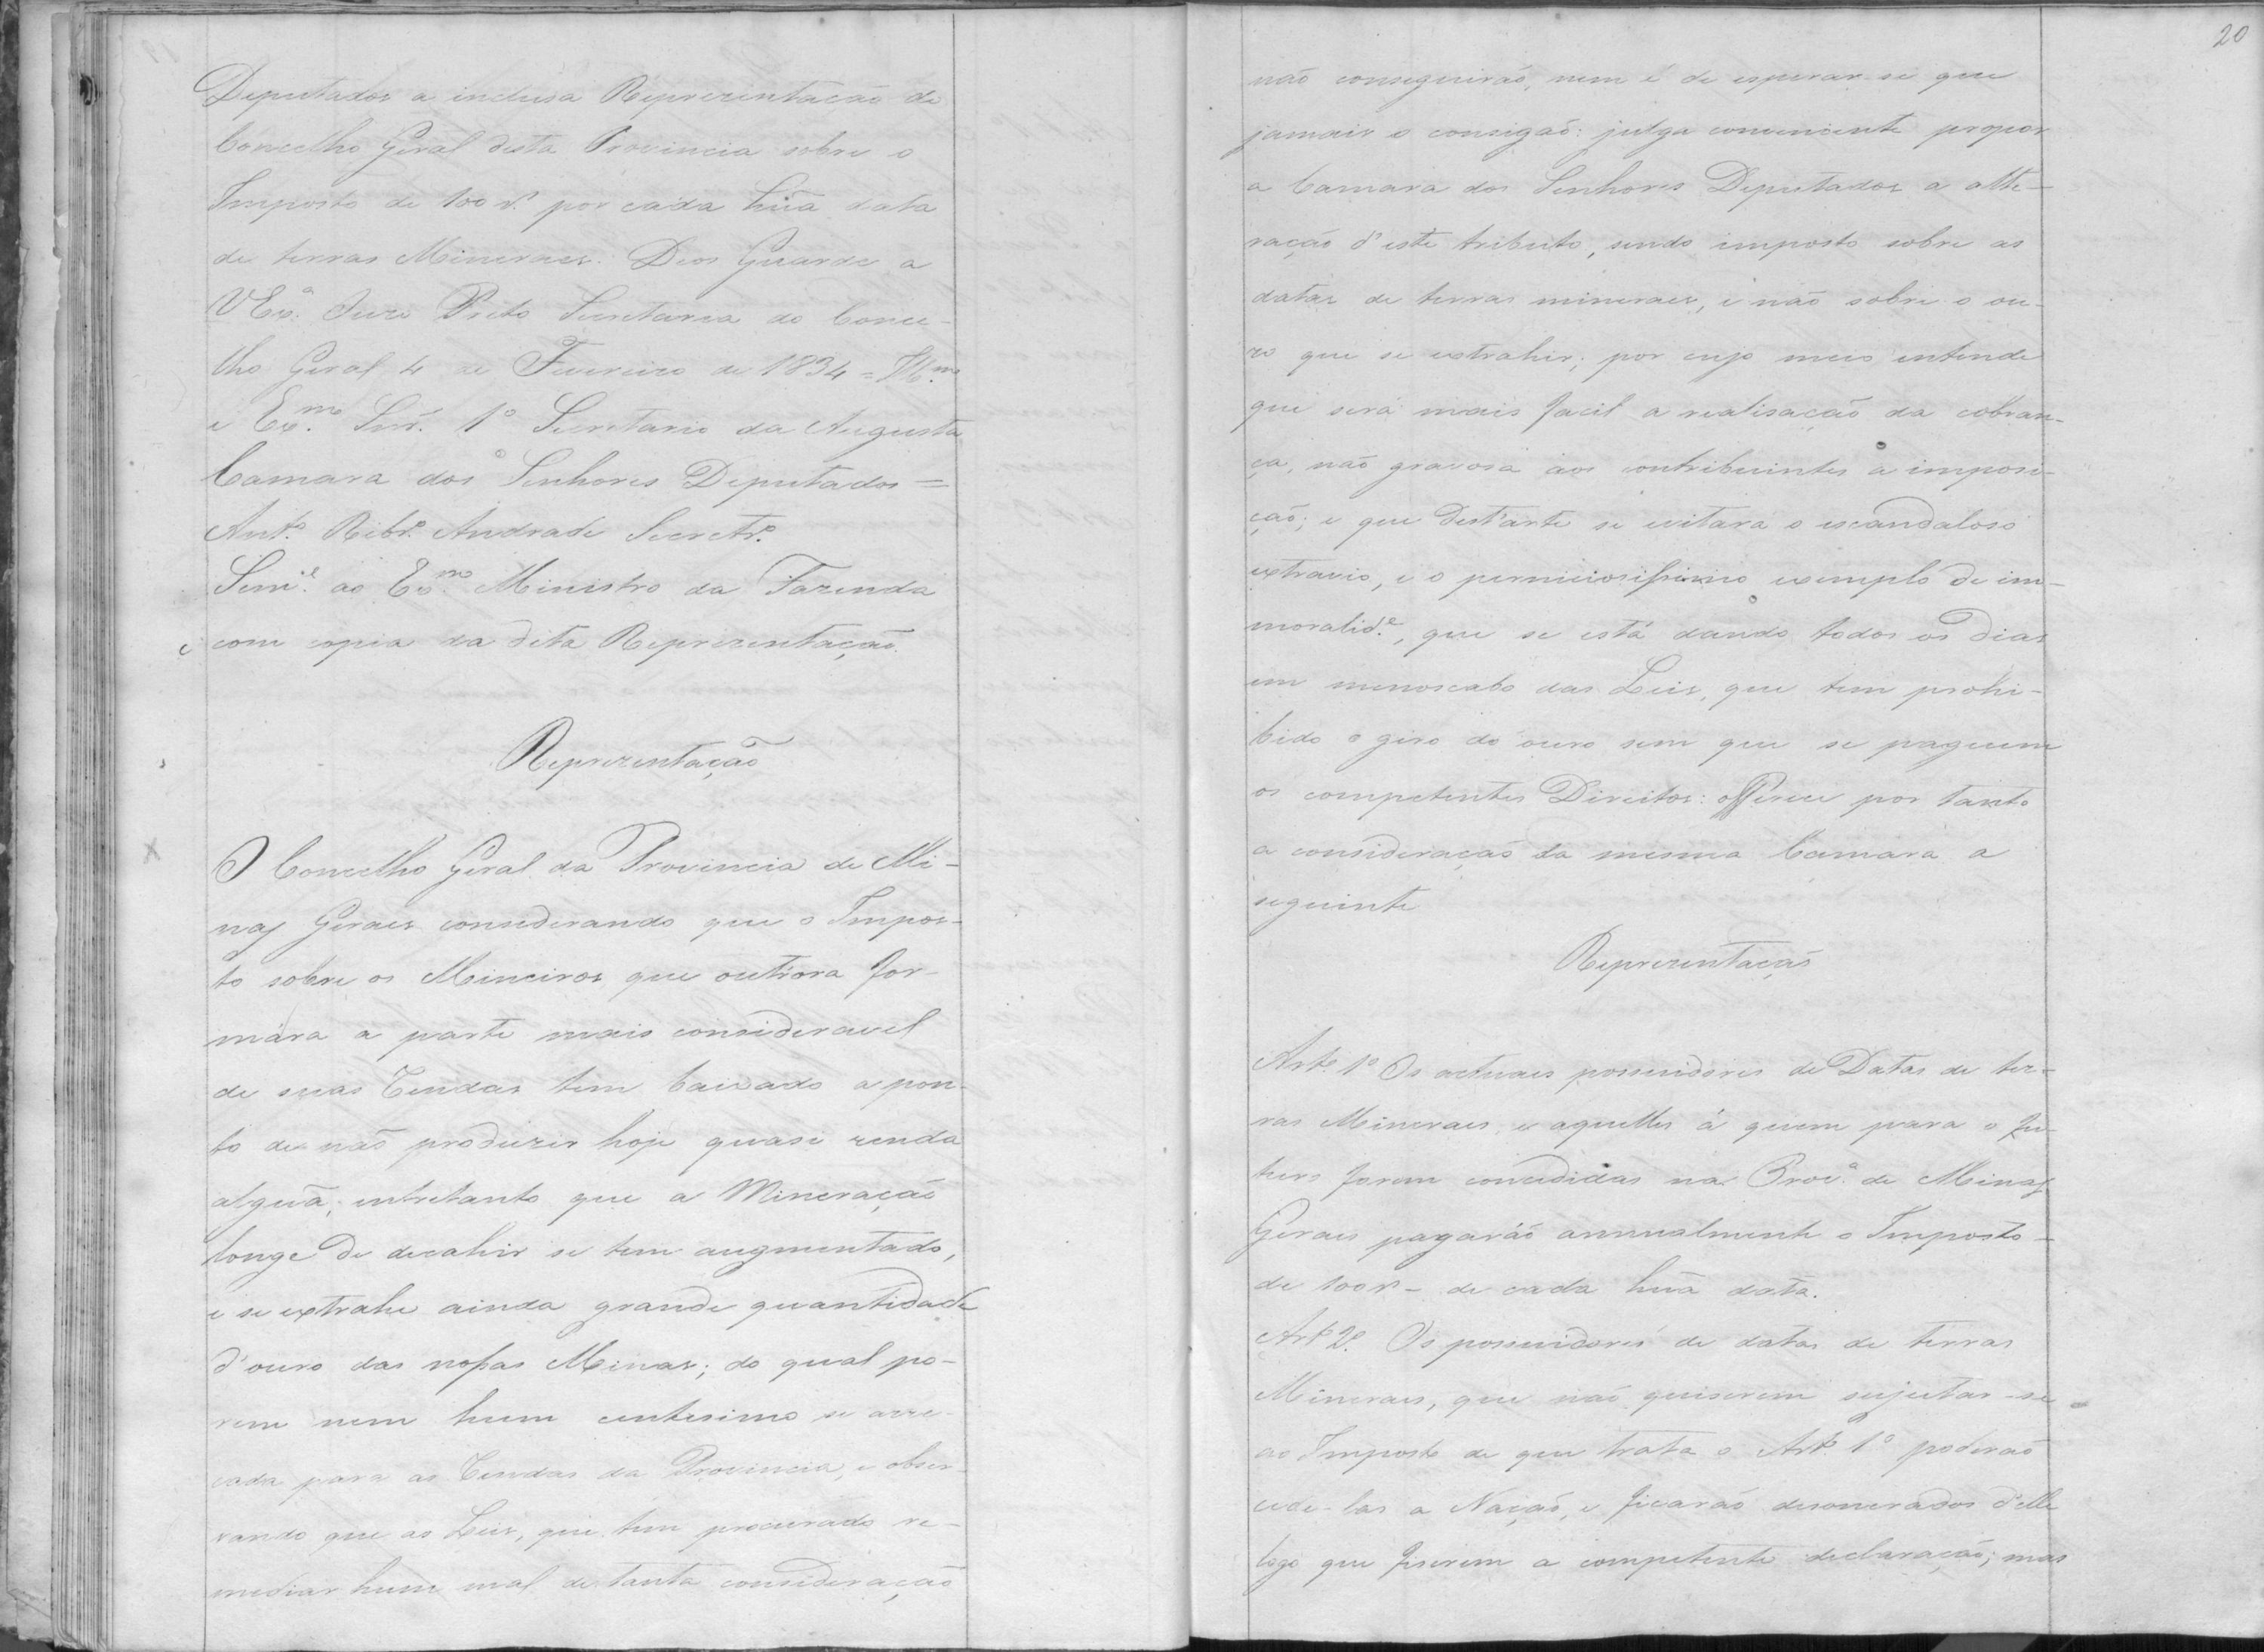 Deputados a incluza Reprezentação do
Concelho Geral desta Provincia sobre o
Imposto de 100 r.s por cada hũa data
de terras Mineraes. Deos Guarde a
V Ex.ª Ouro Preto Secretaria do Conce-
lho Geral 4 de Fevereiro de 1834 = Ill.mo
e Ex.mo Snr. 1º Secretario da Augusta
Camara dos Senhores Deputados =
Ant.º Ribr.º Andrade Secretr.º
Sem.e ao Ex.mo Ministro da Fazenda
com copia da dita Reprezentação.
Reprezentação
O Concelho Geral da Provincia de Mi-
nas Geraes considerando que o Impos-
to sobre os Mineiros que outr'ora for-
mára a parte mais consideravel
de suas Rendas tem baixado a pon-
to de não produzir hoje quase renda
alguã; entretanto que a Mineração
longe de decahir se tem augmentado,
e se extrahe ainda grande quantidade
d'ouro das nossas Minas; do qual po-
rem nem hum centesimo se arre-
cada para as Rendas da Provincia, e obser-
vando que as Leis, que tem procurado re-
mediar hum mal de tanta consideração
20
não conseguirão, nem é de esperar-se que
jamais o consigão: julga conveniente propor
a Camara dos Senhores Deputados a alte-
ração d'este tributo, sendo imposto sobre as
datas de terras mineraes, e não sobre o ou-
ro que se extrahir; por cujo meio entende
que será mais facil a realisação da cobran-
ça, não gravosa aos contribuintes a imposi-
ção; e que dest'arte se evitara o escandaloso
extravio, e o perniciosissimo exemplo de im-
moralid.e, que se está dando todos os dias
em menoscabo das Leis, que tem prohi-
bido o giro do ouro sem que se paguem
os competentes Direitos: offerece por tanto
a consideração da mesma Camara a
seguinte
Reprezentação
Art.º 1º Os actuaes possuidores de Datas de ter-
ras Mineraes, e aquelles á quem para o fu-
turo forem concedidas na Prov.ª de Minas
Geraes pagaráõ annualmente o Imposto
de 100 r.s de cada huã data.
Art.º 2.º Os possuidores de datas de terras
Mineraes, que não quiserem sujeitar-se
ao Imposto de que trata o Art.º 1º poderaõ
cede-las a Nação, e ficarão desonerados d'elle
logo que fiserem a competente declaração; mas